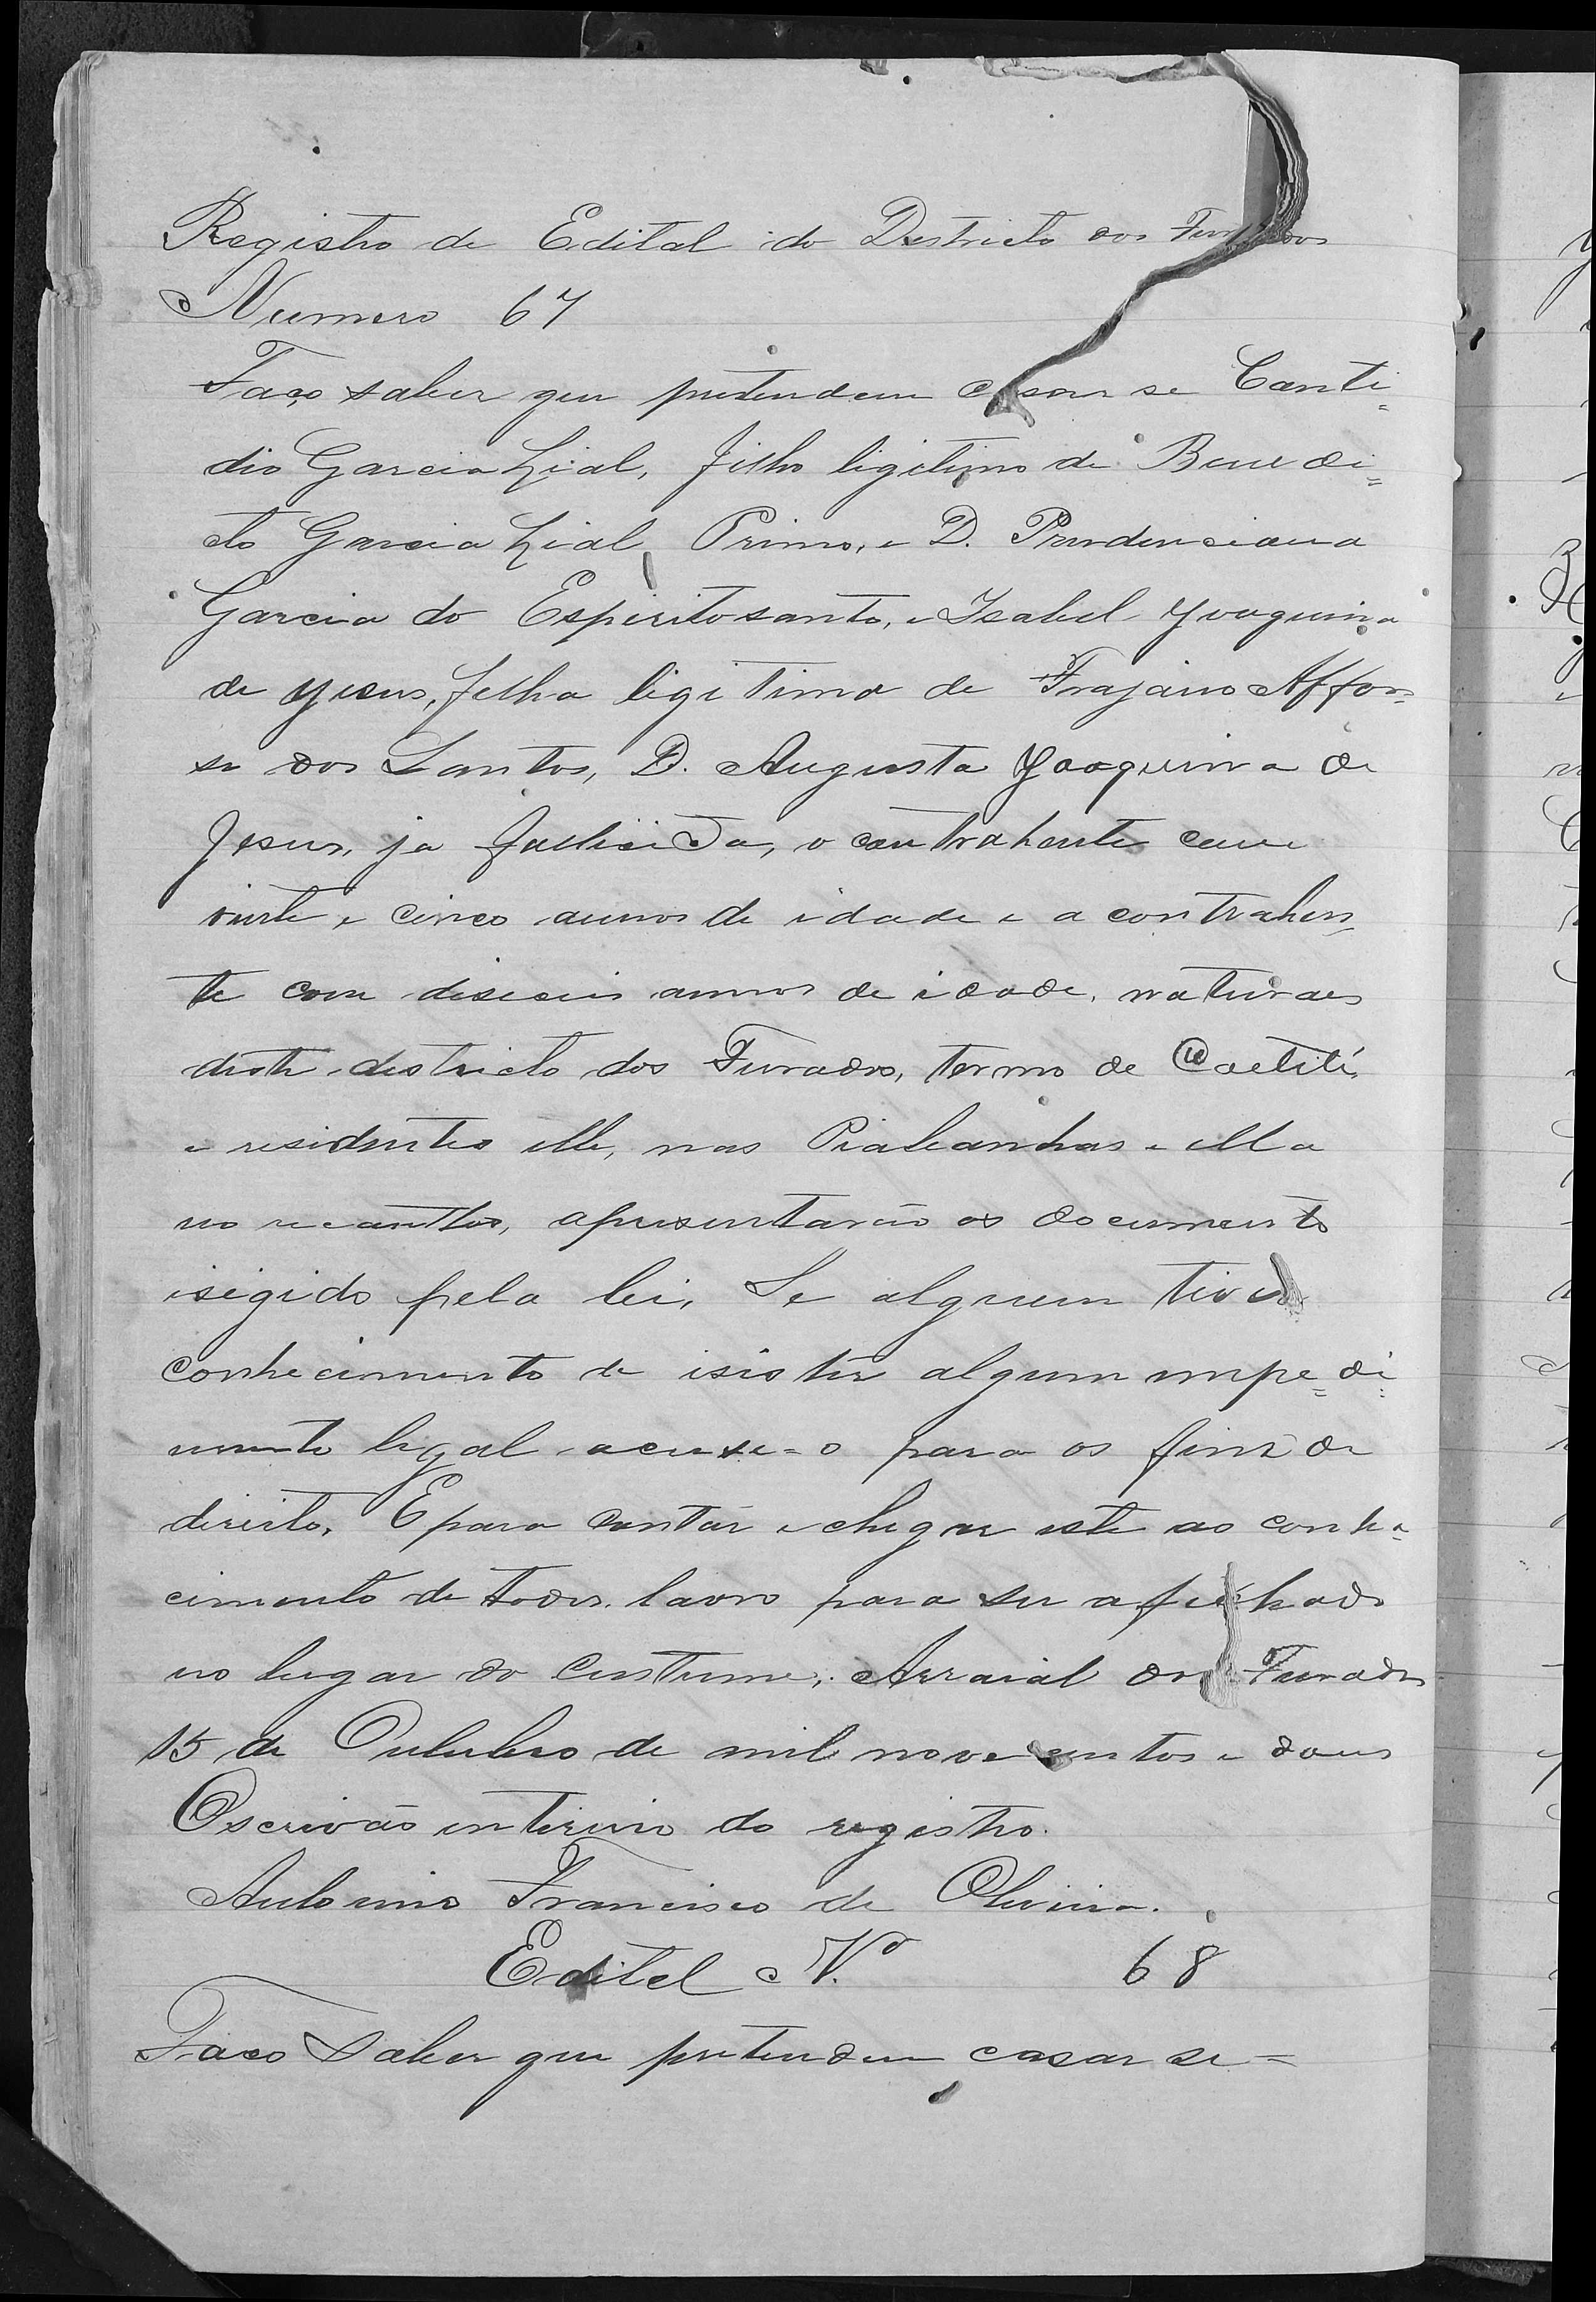 Registro de Edital do Destricto dos Furados
Numero 67
Faço saber que pretendem casar se Canti=
dio Garcia Lial, filho ligitimo de Benedi=
cto Garcia Lial Primo, e D. Prudenciana
Garcia do Espiritosanto, e Isabel Yoaquina
de Yesus, felha ligitima de Trajano Affon=
so dos Santos, D. Augusta Yoaquina de
Jesus, ja fallicida, o contrahente com
vinte e cinco annos de idade e a contrahen=
te com diseseis annos de idade, naturaes
deste destricto dos Furados, termo de Caetité,
e residentes elle, nas Piabanhas e ella
no recantos, apresentarão os documento
isigido pela lei, Se alguem tiver
conhecimento de isistir algum impe=di=
mento legal acuse=o para os fins de
direito, E para constar e chegar este ao conhe=
cimento de todos, lavro para ser afichado
no lugar do custume, Arraial dos Furados
15 de Outubro de mil novecentos e dous
Oscrivão interino do registro.
Antonio Francisco de Oliveira.
Edital N.º 68
Faco Saber que pretendem casar se=